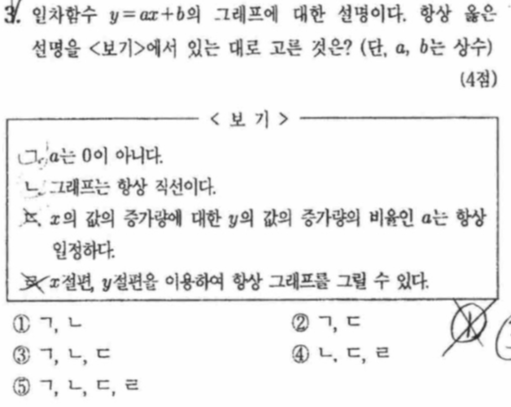 3. 일차함수 y=ax+b의 그래프에 대한 설명이다. 항상 옳은
설명을 <보기>에서 있는 대로 고른 것은? (단, a, b는 상수)
(4점)
< 보 기 >
ㄱ. a는 0이 아니다.
ㄴ. 그래프는 항상 직선이다.
ㄷ. x의 값의 증가량에 대한 y의 값의 증가량의 비율인 a는 항상
일정하다.
ㄹ. x절편, y절편을 이용하여 항상 그래프를 그릴 수 있다.
① ㄱ, ㄴ ② ㄱ, ㄷ
③ ㄱ, ㄴ, ㄷ ④ ㄴ, ㄷ, ㄹ
⑤ ㄱ, ㄴ, ㄷ, ㄹ